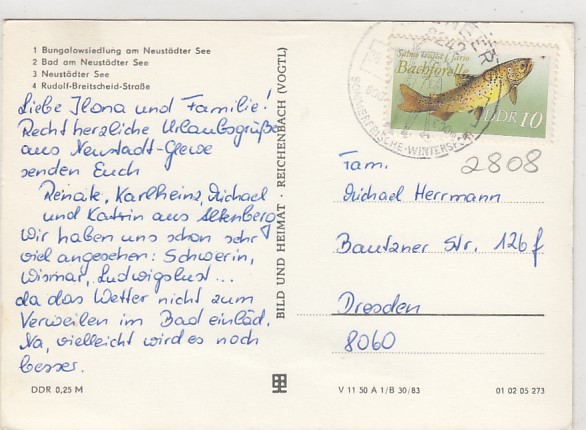 1 Bungalowsiedlung am Neustädter See
2 Bad am Neustädter See
3 Neustädter See
4 Rudolf-Breitscheid-Straße
Liebe Ilona und Familie!
Recht herzliche Urlaubsgrüße
aus Neustadt-Glewe
senden Euch
Renate, Karlheinz, Michael
und Katrin aus Altenberg
Wir haben uns schon sehr
viel angesehen: Schwerin,
Wismar, Ludwigslust...
da das Wetter nicht zum
Verweilen im Bad einläd.
Na, vielleicht wird es noch
besser.
DDR 0,25 M
BILD UND HEIMAT · REICHENBACH (VOGTL)
8242
SOMMERFRISCHE · WINTERSPORT
Salmo trutta f. fario
Bachforelle
DDR 10
2808
Fam.
Michael Herrmann
Bautzner Str. 126f
Dresden
8060
V 11 50 A 1/B 30/83
01 02 05 273